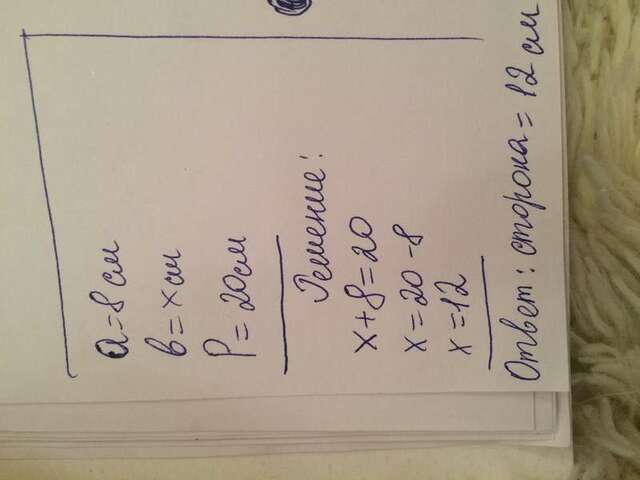 a=8см
в=xсм
P=20см
Решение:
x+8=20
x=20-8
x=12
Ответ: сторона=12см